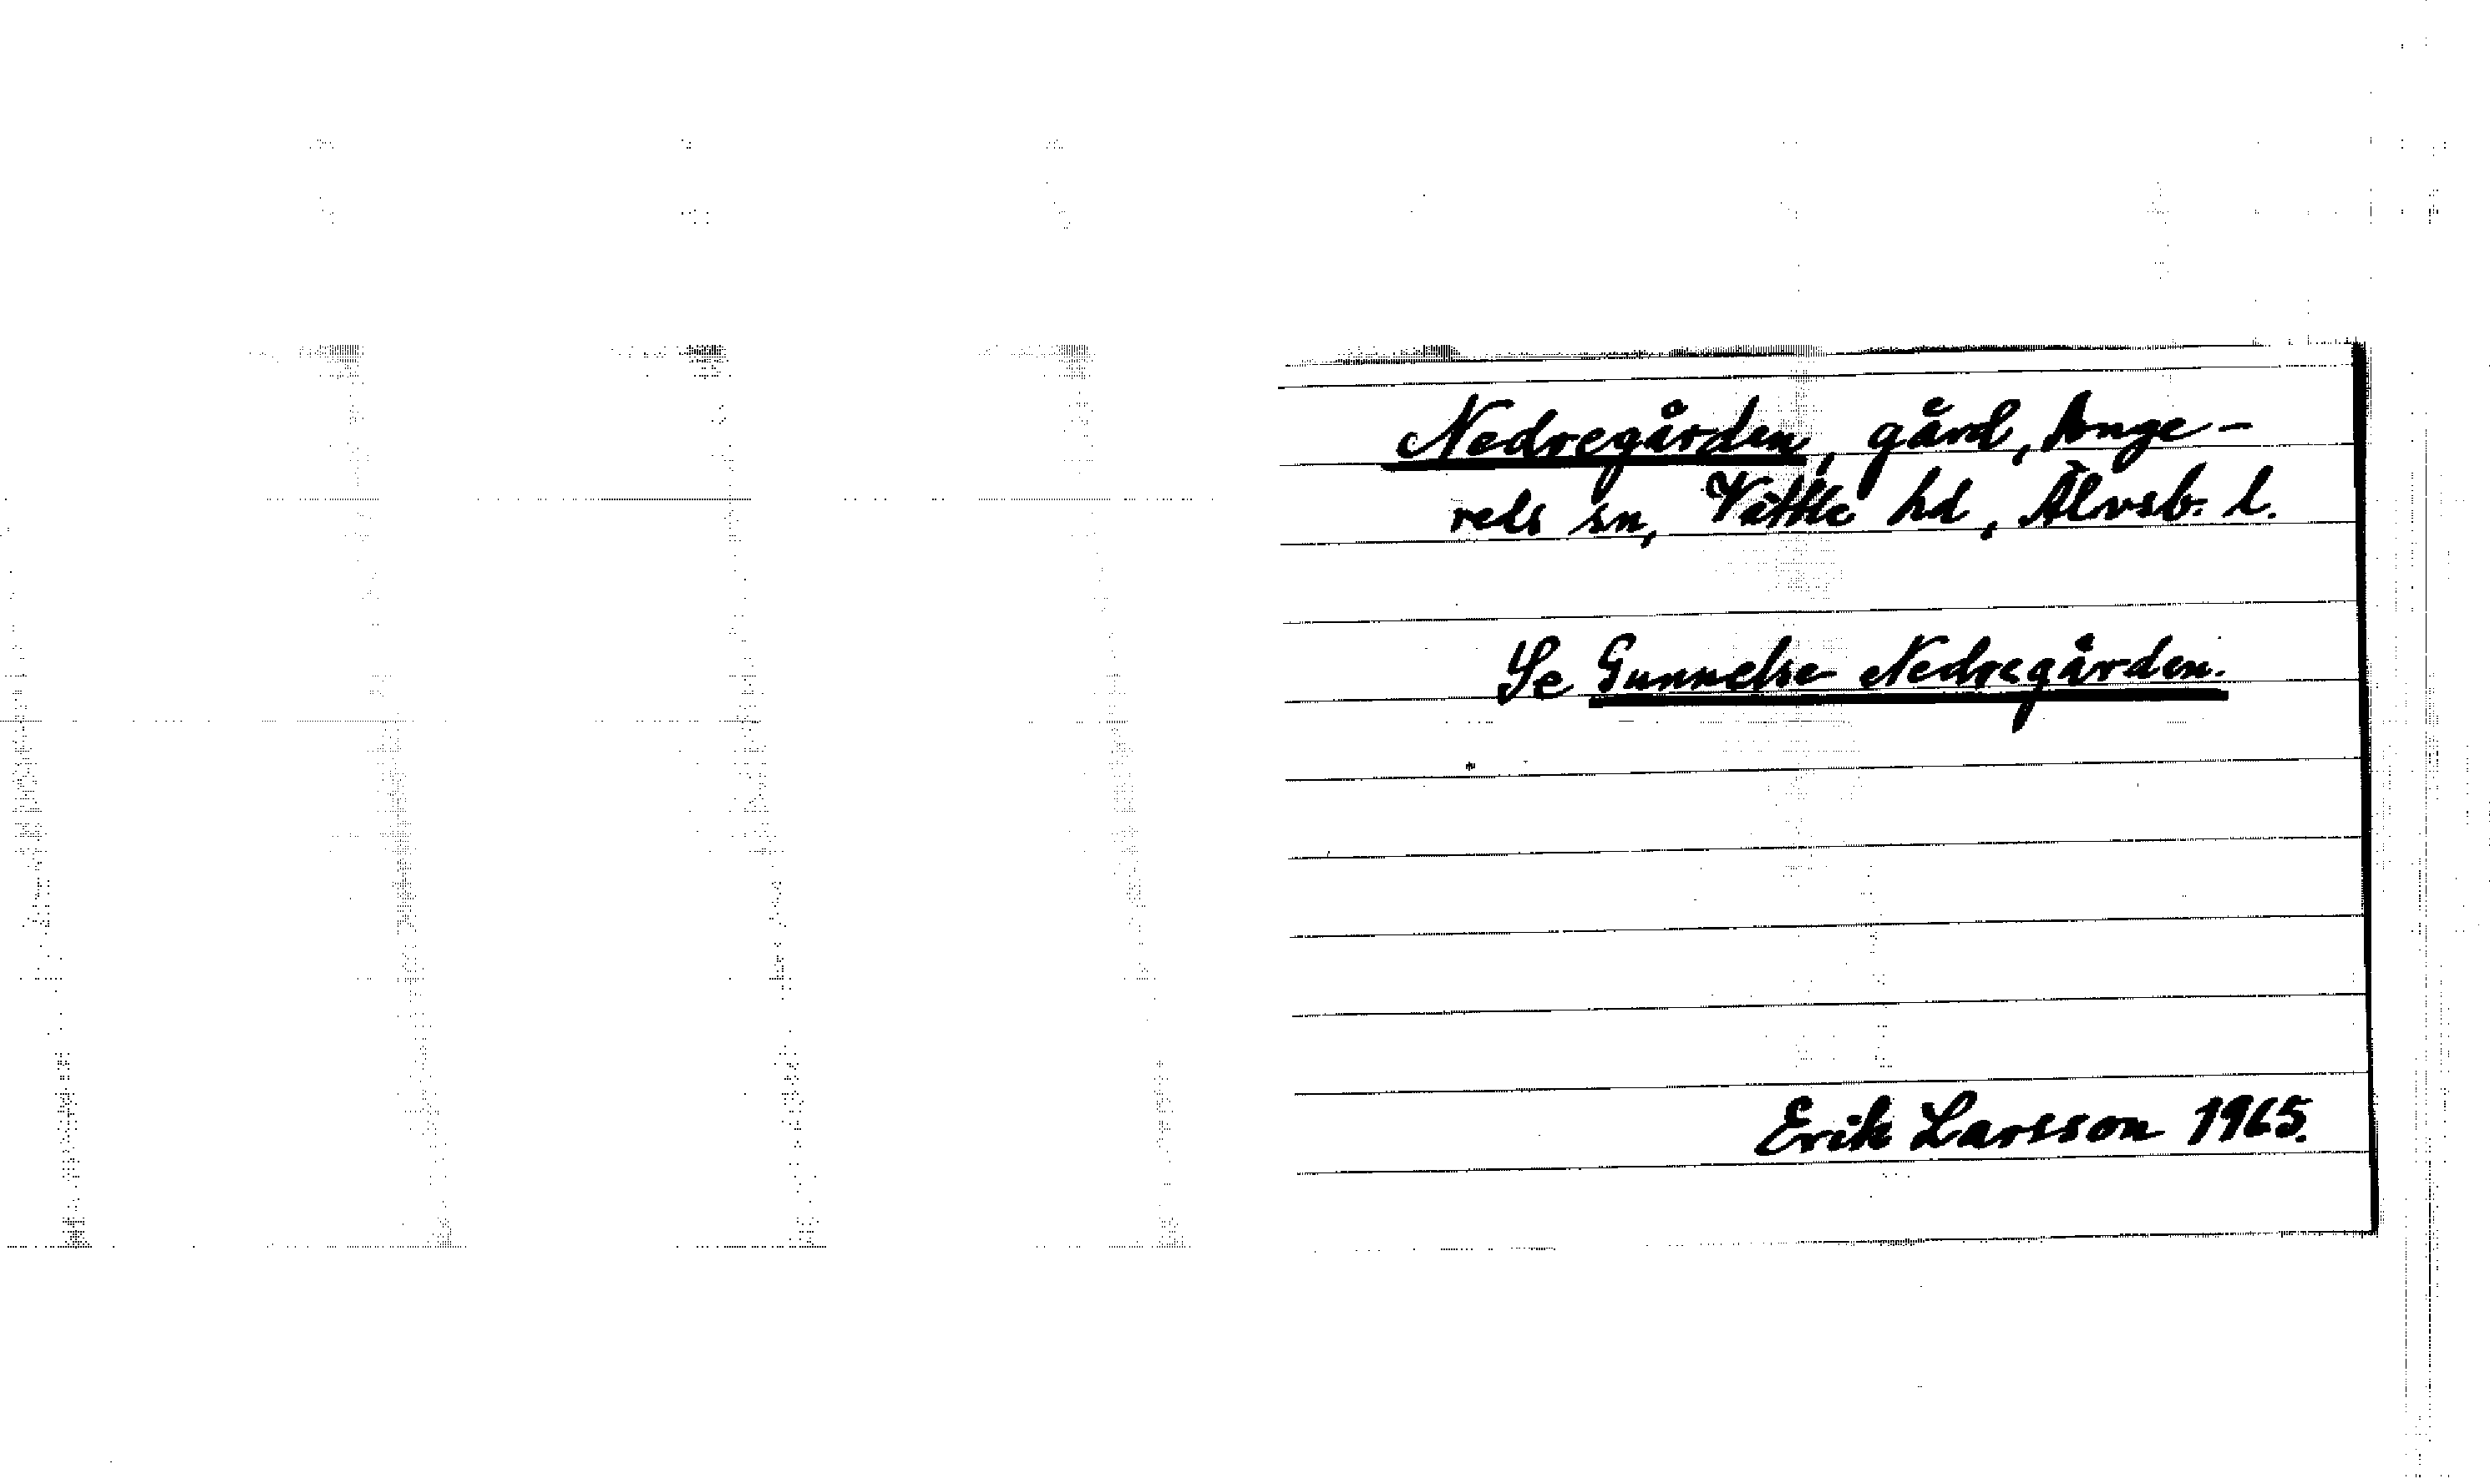 Nedregården, gård, Ange-
reds sn, Vättle hd, Älvsb. l.
Se Gunnelse Nedregården.
Erik Larsson 1965.